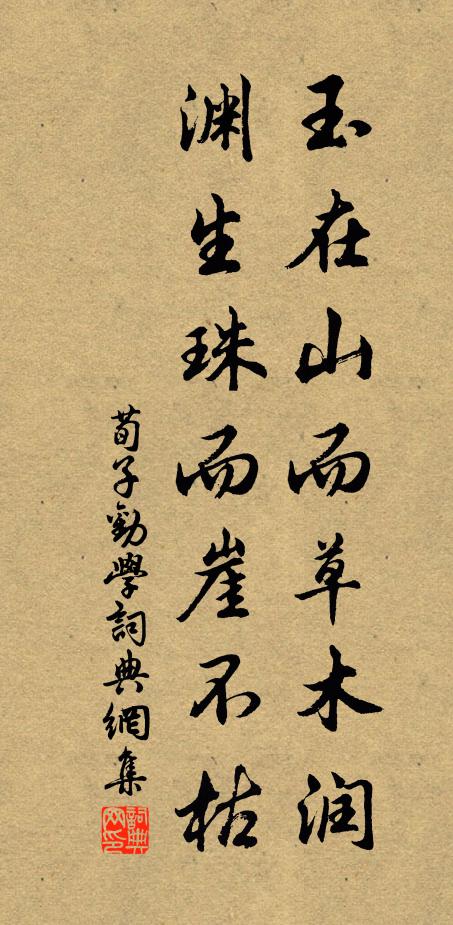 玉在山而草木润
渊生珠而崖不枯
荀子勸學詞典網集
詞典网印